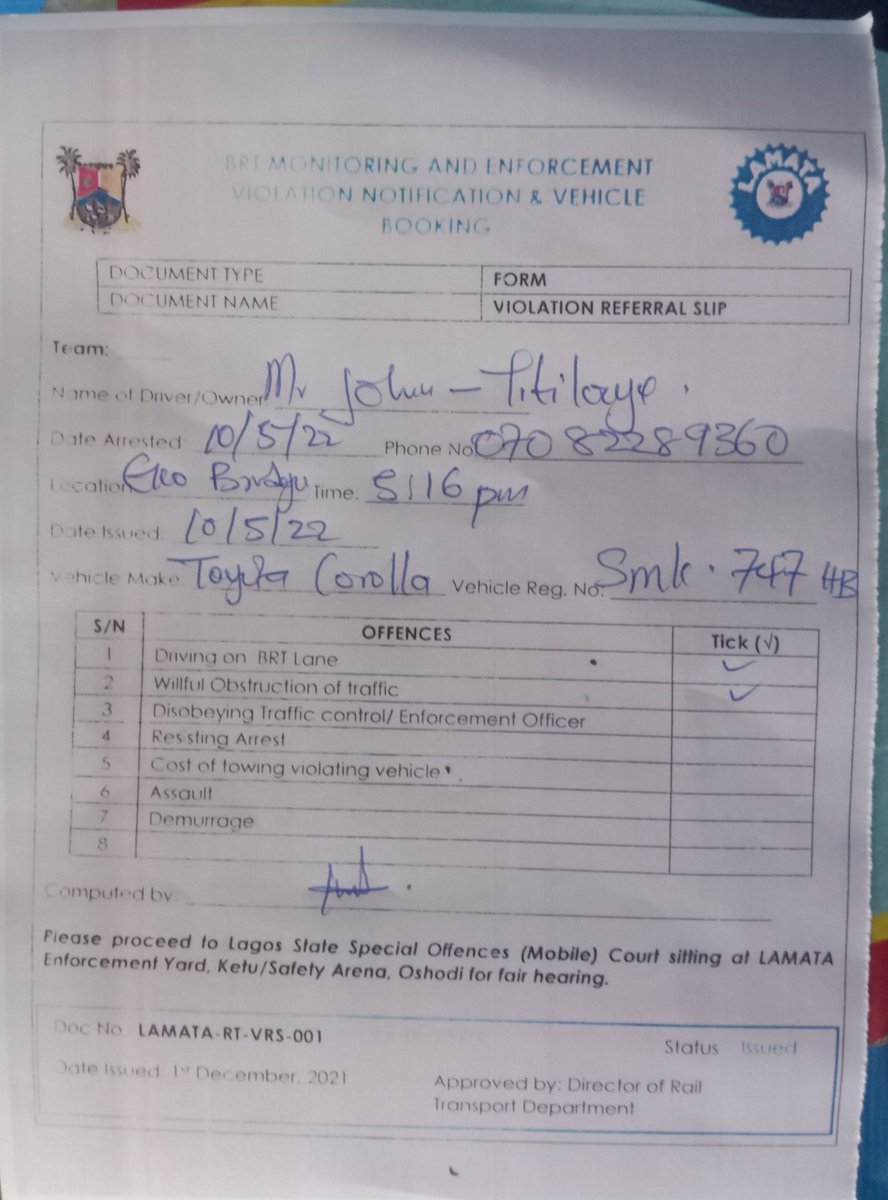 BRT MONITORING AND ENFORCEMENT
VIOLATION NOTIFICATION & VEHICLE
BOOKING
LAMATA
DOCUMENT TYPE FORM
DOCUMENT NAME VIOLATION REFERRAL SLIP
Team:
Name of Driver/Owner Mr John - Titiloye.
Date Arrested: 10/5/22 Phone No 07082289360
Location Eko Bridge Time: 5:16 pm
Date Issued: 10/5/22
Vehicle Make Toyota Corolla Vehicle Reg. No: Smk. 747 HB
S/N OFFENCES Tick (√)
1 Driving on BRT Lane ✓
2 Willful Obstruction of traffic ✓
3 Disobeying Traffic control/ Enforcement Officer
4 Resisting Arrest
5 Cost of towing violating vehicle
6 Assault
7 Demurrage
8
Computed by:
Please proceed to Lagos State Special Offences (Mobile) Court sitting at LAMATA
Enforcement Yard, Ketu/Safety Arena, Oshodi for fair hearing.
Doc No LAMATA-RT-VRS-001
Status Issued
Date Issued: 1st December, 2021
Approved by: Director of Rail
Transport Department